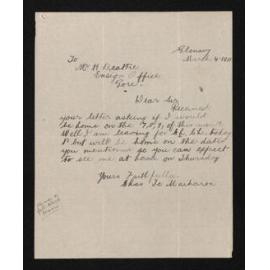 March 4
To
Mr H Beattie
Ensign Office
Gore.
Dear Sir
Received
your letter asking if I would
be home on the 7, 8, 9, of this month
Well I am leaving for
but will be home on the dates
you mentioned so you can expect
to see me at home on Thursday
Yours Faithfully
Chas